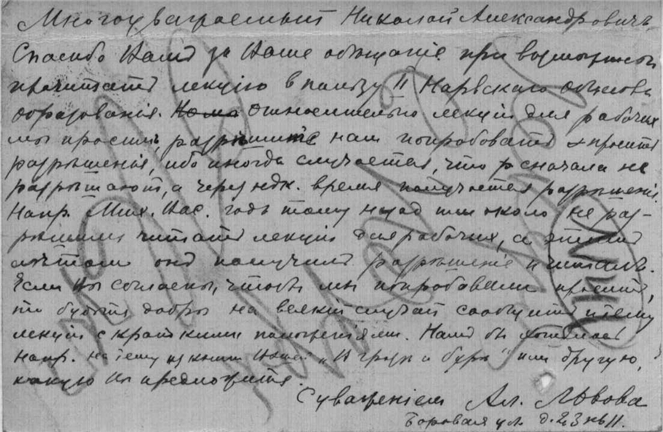 Многоуважаемый Николай Александровичъ,
Спасибо Вамъ за Ваше обѣщаніе при возможности
прочитать лекцію в пользу II Нарвскаго Общества
образованія. Относительно лекцій для рабочих
мы просимъ разрѣшить нам попробовать просить
разрѣшенія, ибо иногда случается, что сначала не
разрѣшаютъ, а через нѣк. время получается разрѣшеніе.
Напр. Мих. Вас. годъ тому назад или около не раз-
рѣшили читать лекціи для рабочих, а этимъ
лѣтом онъ получилъ разрѣшеніе и читалъ.
Если Вы согласны, чтобы мы попробовали просить,
то будьте добры на всякій случай сообщить тему
лекціи с краткими положеніями. Намъ бы хотѣлось
напр. на тему из книги Вашей или другую,
какую Вы предложите.
С уваженіем Ал. Львова
Боровая ул. д. 23 кв 11.